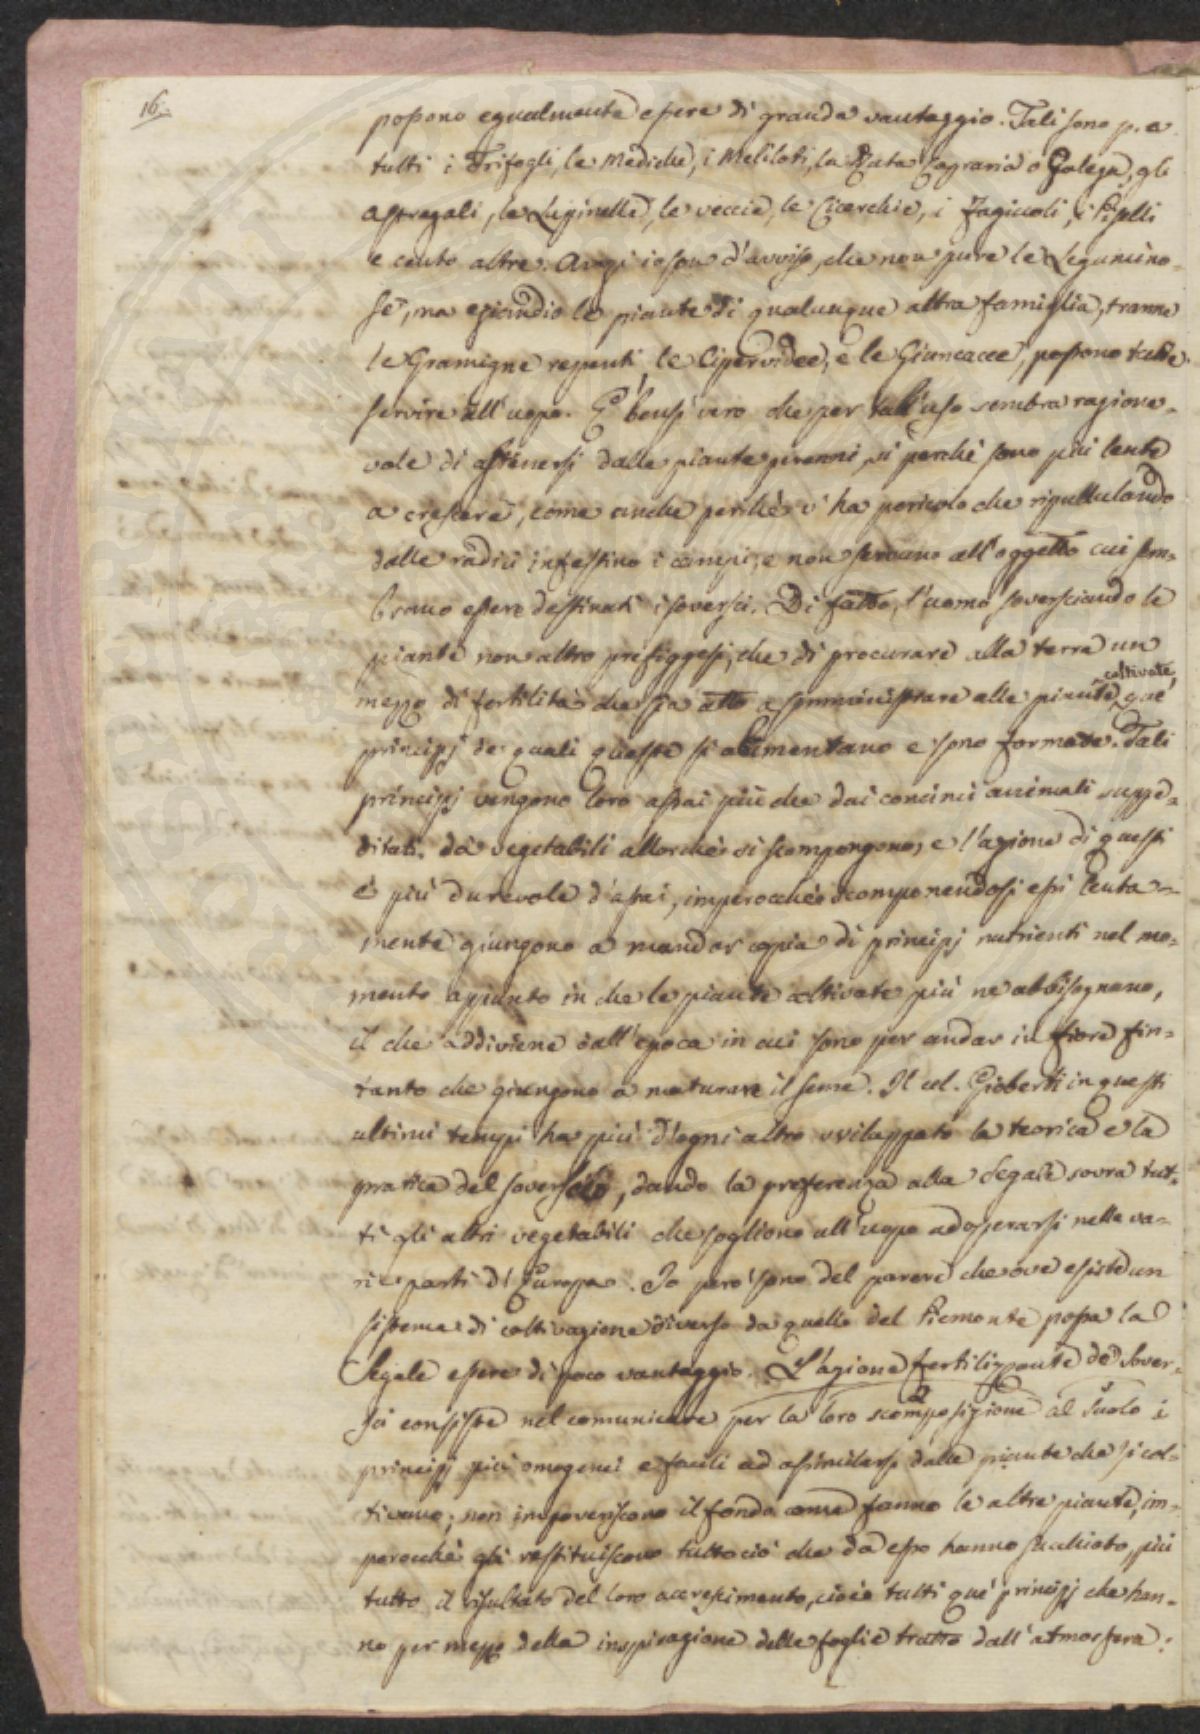 16.
possono egualmente essere di grande vantaggio. Tali sono p. e.
tutti i Trifogli, le Mediche, i Meliloti, la Ruta Capraria o Galega, gli
Astragali, le Lupinelle, le veccie, le Cicerchie, i Fagiuoli, i Piselli
e cento altre. Anzi io son d'avviso, che non pure le Legumino-
se, ma eziandio le piante di qualunque altra famiglia, tranne
le Gramigne repenti, le Ciperoidee, e le Giuncacee, possono tutte
servire all'uopo. E' bensì vero che per tall'uso sembra ragione-
vole di astenersi dalle piante perenni, sì perchè sono più lente
a crescere, come anche perchè v'ha pericolo che ripullulando
dalle radici infestino i campi, e non servano all'oggetto cui sem-
brano essere destinati i soversci. Di fatto, l'uomo soversciando le
piante non altro prefiggesi, che di procurare alla terra un
mezzo di fertilità che sia atto a somministrare alle piante coltivate, que'
principj de' quali queste si alimentano e sono formate. Tali
principj vengono loro assai più che dai concimi animali sugge-
ditati da vegetabili allorchè si scompongono, e l'azione di questi
è più durevole d'assai, imperocchè scomponendosi essi lenta-
mente giungono a mandar copia di principj nutrienti nel mo-
mento appunto in che le piante coltivate più ne abbisognano,
il che addiviene dall'epoca in cui sono per andar in fiore fin-
tanto che giungono a maturare il seme. Il cel. Gioberti in questi
ultimi tempi ha più d'ogni altro sviluppato la teorica e la
pratica del soverscio, dando la preferenza alla Segale sovra tut-
ti gli altri vegetabili che sogliono all'uopo adoperarsi nelle va-
rie parti di Europa. Io però sono del parere che ove esiste un
sistema di coltivazione diverso da quello del Piemonte possa la
Segale essere di poco vantaggio. L'azione fertilizzante de' Sover-
sci consiste nel comunicare per la loro scomposizione al Suolo i
principj più omogenei e facili ad assimilarsi dalle piante che si col-
tivano; non impoveriscono il fondo come fanno le altre piante, im-
perocchè gli restituiscono tuttociò che da esso hanno succhiato, più
tutto il risultato del loro accrescimento, cioè tutti que' principj che han-
no per mezzo della inspirazione delle foglie tratto dall'atmosfera: